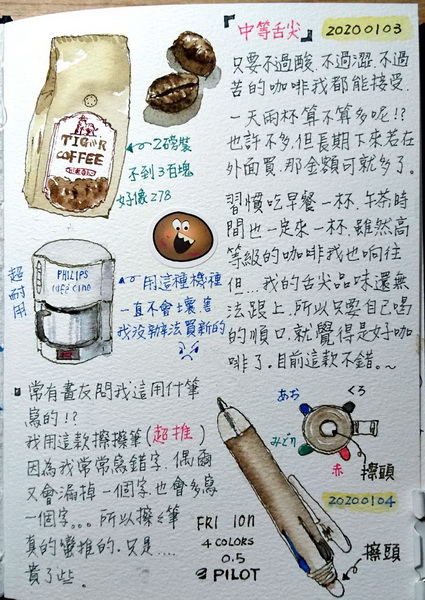 『中等舌尖』
20200103
只要不過酸.不過澀.不過
苦的咖啡我都能接受.
一天兩杯算不算多呢!?
也許不多.但長期下來若在
外面買.那金額可就多了。
習慣吃早餐一杯.午茶時
間也一定來一杯.雖然高
等級的咖啡我也响往
但...我的舌尖品味還無
法跟上.所以只要自己喝
的順口.就覺得是好咖
啡了。目前這款不錯。~
TIGER
COFFEE
2磅裝
不到3百塊
好像278
超耐用
PHILIPS
café cino
用這種機種
一直不會壞.害
我沒辦法買新的
常有畫友問我這用什筆
寫的!?
我用這款擦擦筆(超推)
因為我常常寫錯字.偶爾
又會漏掉一個字.也會多寫
一個字。。。所以擦擦筆
真的蠻推的.只是....
貴了些.
FRIXION
4 COLORS
0.5
PILOT
あお
くろ
みどり
赤
擦頭
20200104
擦頭